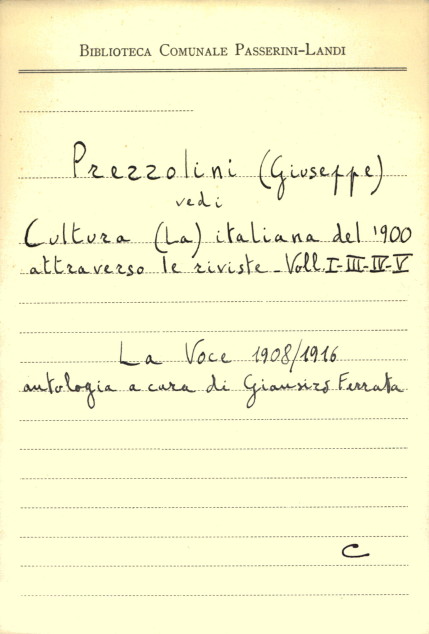 Biblioteca Comunale Passerini-Landi
Prezzolini (Giuseppe)
vedi
Cultura (La) italiana del '900
attraverso le riviste - Voll. I-III-IV-V
La Voce 1908/1916
antologia a cura di Giansiro Ferrata
C